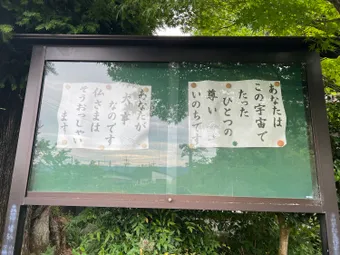 あなたは
この宇宙で
たった
ひとつの
尊い
いのちです
あなたが
大事
なのです
仏さまは
そうおっしゃい
ます